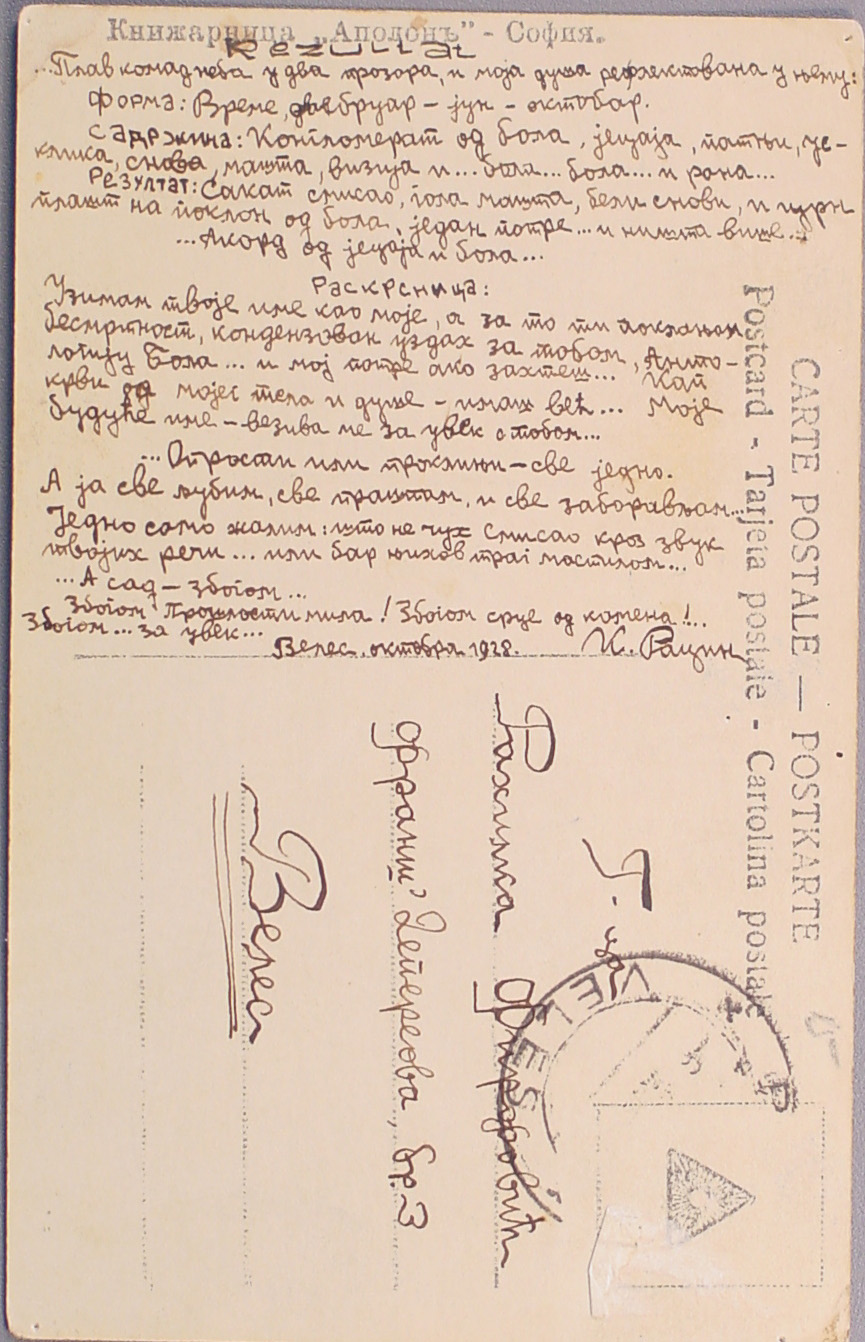 Книжарница „Аполонъ” - София.
Rezultat
...Плав комад неба у два прозора, и моја душа рефлектована у њему:
Форма: Време, фебруар – јун – октобар.
Садржина: Конгломерат од бола, јецаја, патњи, ус-
клика, снова, машта, визија и... бола... бола... и рана...
Резултат: Сакат смисао, гола машта, бели снови, и црн
плашт на поклон од бола, један потре... и ништа више...
...Акорд од јецаја и бола...
Раскрсница:
Узимам твоје име као моје, а за то ти поклањам
бесмртност, кондензован уздах за тобом, Анто-
логију Бола... и мој потре ако захтеш... Кап
крви од мојег тела и душе – имаш већ... Моје
будуће име – везива ме за увек с тобом...
...Опрости или проклињи – све једно.
А ја све љубим, све праштам, и све заборављам...
Једно само жалим: што не чух смисао кроз звук
твојих речи... или бар њихов траг мастилом...
...А сад – збогом...
Збогом прошлости мила! Збогом срце од камена!..
Збогом... за увек...
Велес, октобра 1928. К. Рацин
CARTE POSTALE — POSTKARTE
Postcard - Tarjeia postale - Cartolina postale
Г-ца
Рахилка Фирфовић
Франш Депереова, бр. 3
Велес
VELES